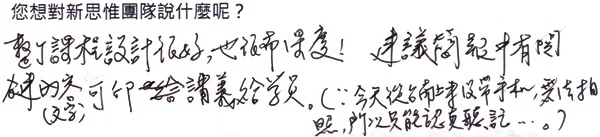 您想對新思惟團隊說什麼呢？
整個課程設計很好，也很有深度！ 建議簡報中有關
鍵的文字，可印給講義給學員。(∵今天從台南上來沒帶手機，無法拍
照，所以只能認真聽記…。)